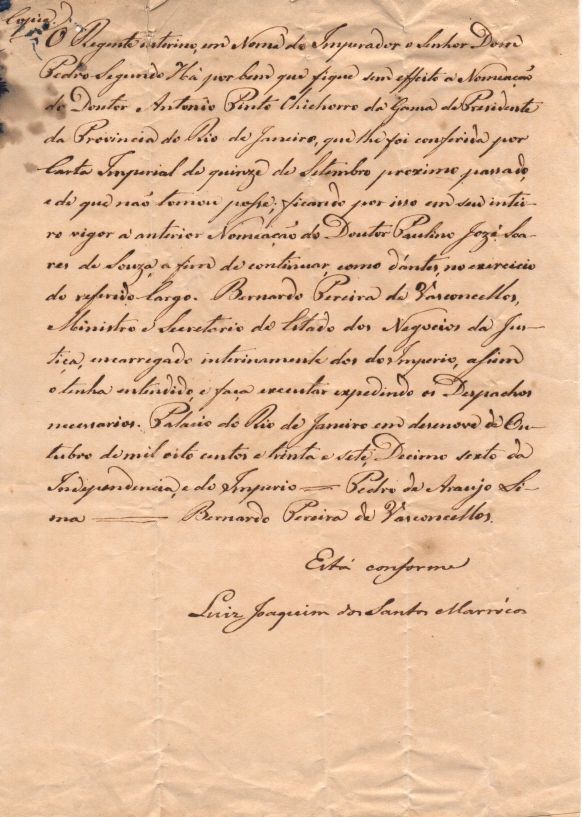 Copia
O Regente interino, em Nome do Imperador o Senhor Dom
Pedro Segundo Há por bem que fique sem effeito a Nomeação
do Doutor Antonio Pinto Chichorro da Gama de Presidente
da Provincia do Rio de Janeiro, que lhe foi conferida por
Carta Imperial de quinze de Setembro proximo passado,
e de que não tomou posse; ficando por isso em seu intei-
ro vigor a anterior Nomeação do Doutor Paulino Jozé Soa-
res de Souza, a fim de continuar, como d'antes, no exercicio
do referido Cargo. Bernardo Pereira de Vasconcellos,
Ministro e Secretario de Estado dos Negocios da Jus-
tiça, encarregado interinamente dos do Imperio, assim
o tenha entendido, e faça executar expedindo os Despachos
necessarios. Palacio do Rio de Janeiro em desenove de Ou-
tubro de mil oito centos e trinta e sete, Decimo sexto da
Independencia, e do Imperio — Pedro de Araujo Li-
ma — Bernardo Pereira de Vasconcellos.
Está conforme
Luiz Joaquim dos Santos Marrócos